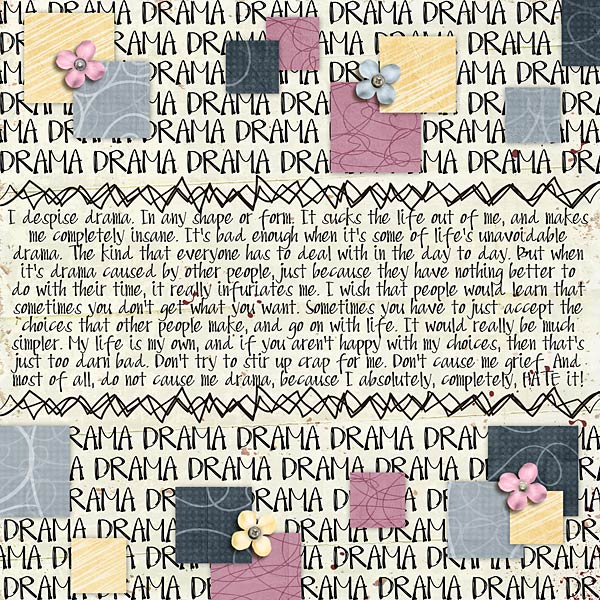 MA DRAMA DRAMA DRAMA DRAMA
MA DRAMA DRAMA DRAMA
MA DRAMA DRAMA
DRAMA DRAMA DRAMA
MA DRAMA DRAMA DRAMA DRAMA
DRAMA DRAMA DRAMA DRAMA DRAMA DRAMA
I despise drama. In any shape or form. It sucks the life out of me, and makes
me completely insane. It's bad enough when it's some of life's unavoidable
drama. The kind that everyone has to deal with in the day to day. But when
it's drama caused by other people, just because they have nothing better to
do with their time, it really infuriates me. I wish that people would learn that
sometimes you don't get what you want. Sometimes you have to just accept the
choices that other people make, and go on with life. It would really be much
simpler. My life is my own, and if you aren't happy with my choices, then that's
just too darn bad. Don't try to stir up crap for me. Don't cause me grief. And
most of all, do not cause me drama, because I absolutely, completely, HATE it!
DRAMA DRAMA DRAMA DRAMA DRAMA
DRAMA DRAMA DRAMA DRAMA DRAMA
DRAMA DRAMA DRAMA
DRAMA DRAMA DRAMA
AMA DRAMA DRAMA DRAMA
DRAMA DRAMA DRAMA DRAMA